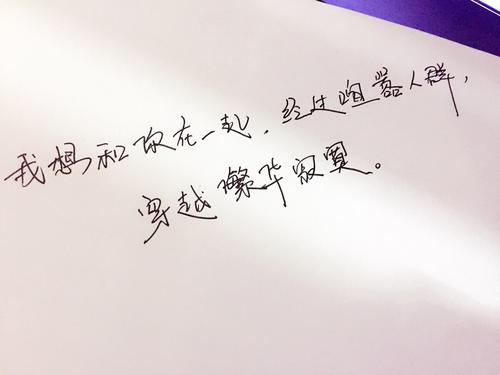 我想和你在一起，经过喧嚣人群，
穿越繁华寂寞。